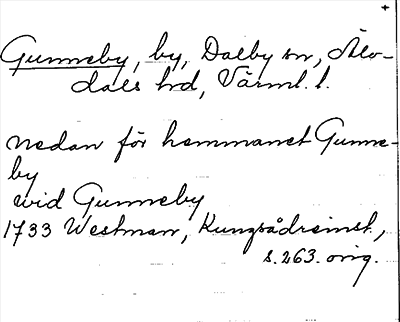 Gunneby, by, Dalby sn, Älv-
dals hd, Värml. l.
nedan för hemmanet Gunne-
by
wid Gunneby
1733 Westman, Kungsådreinst.,
s. 263. orig.